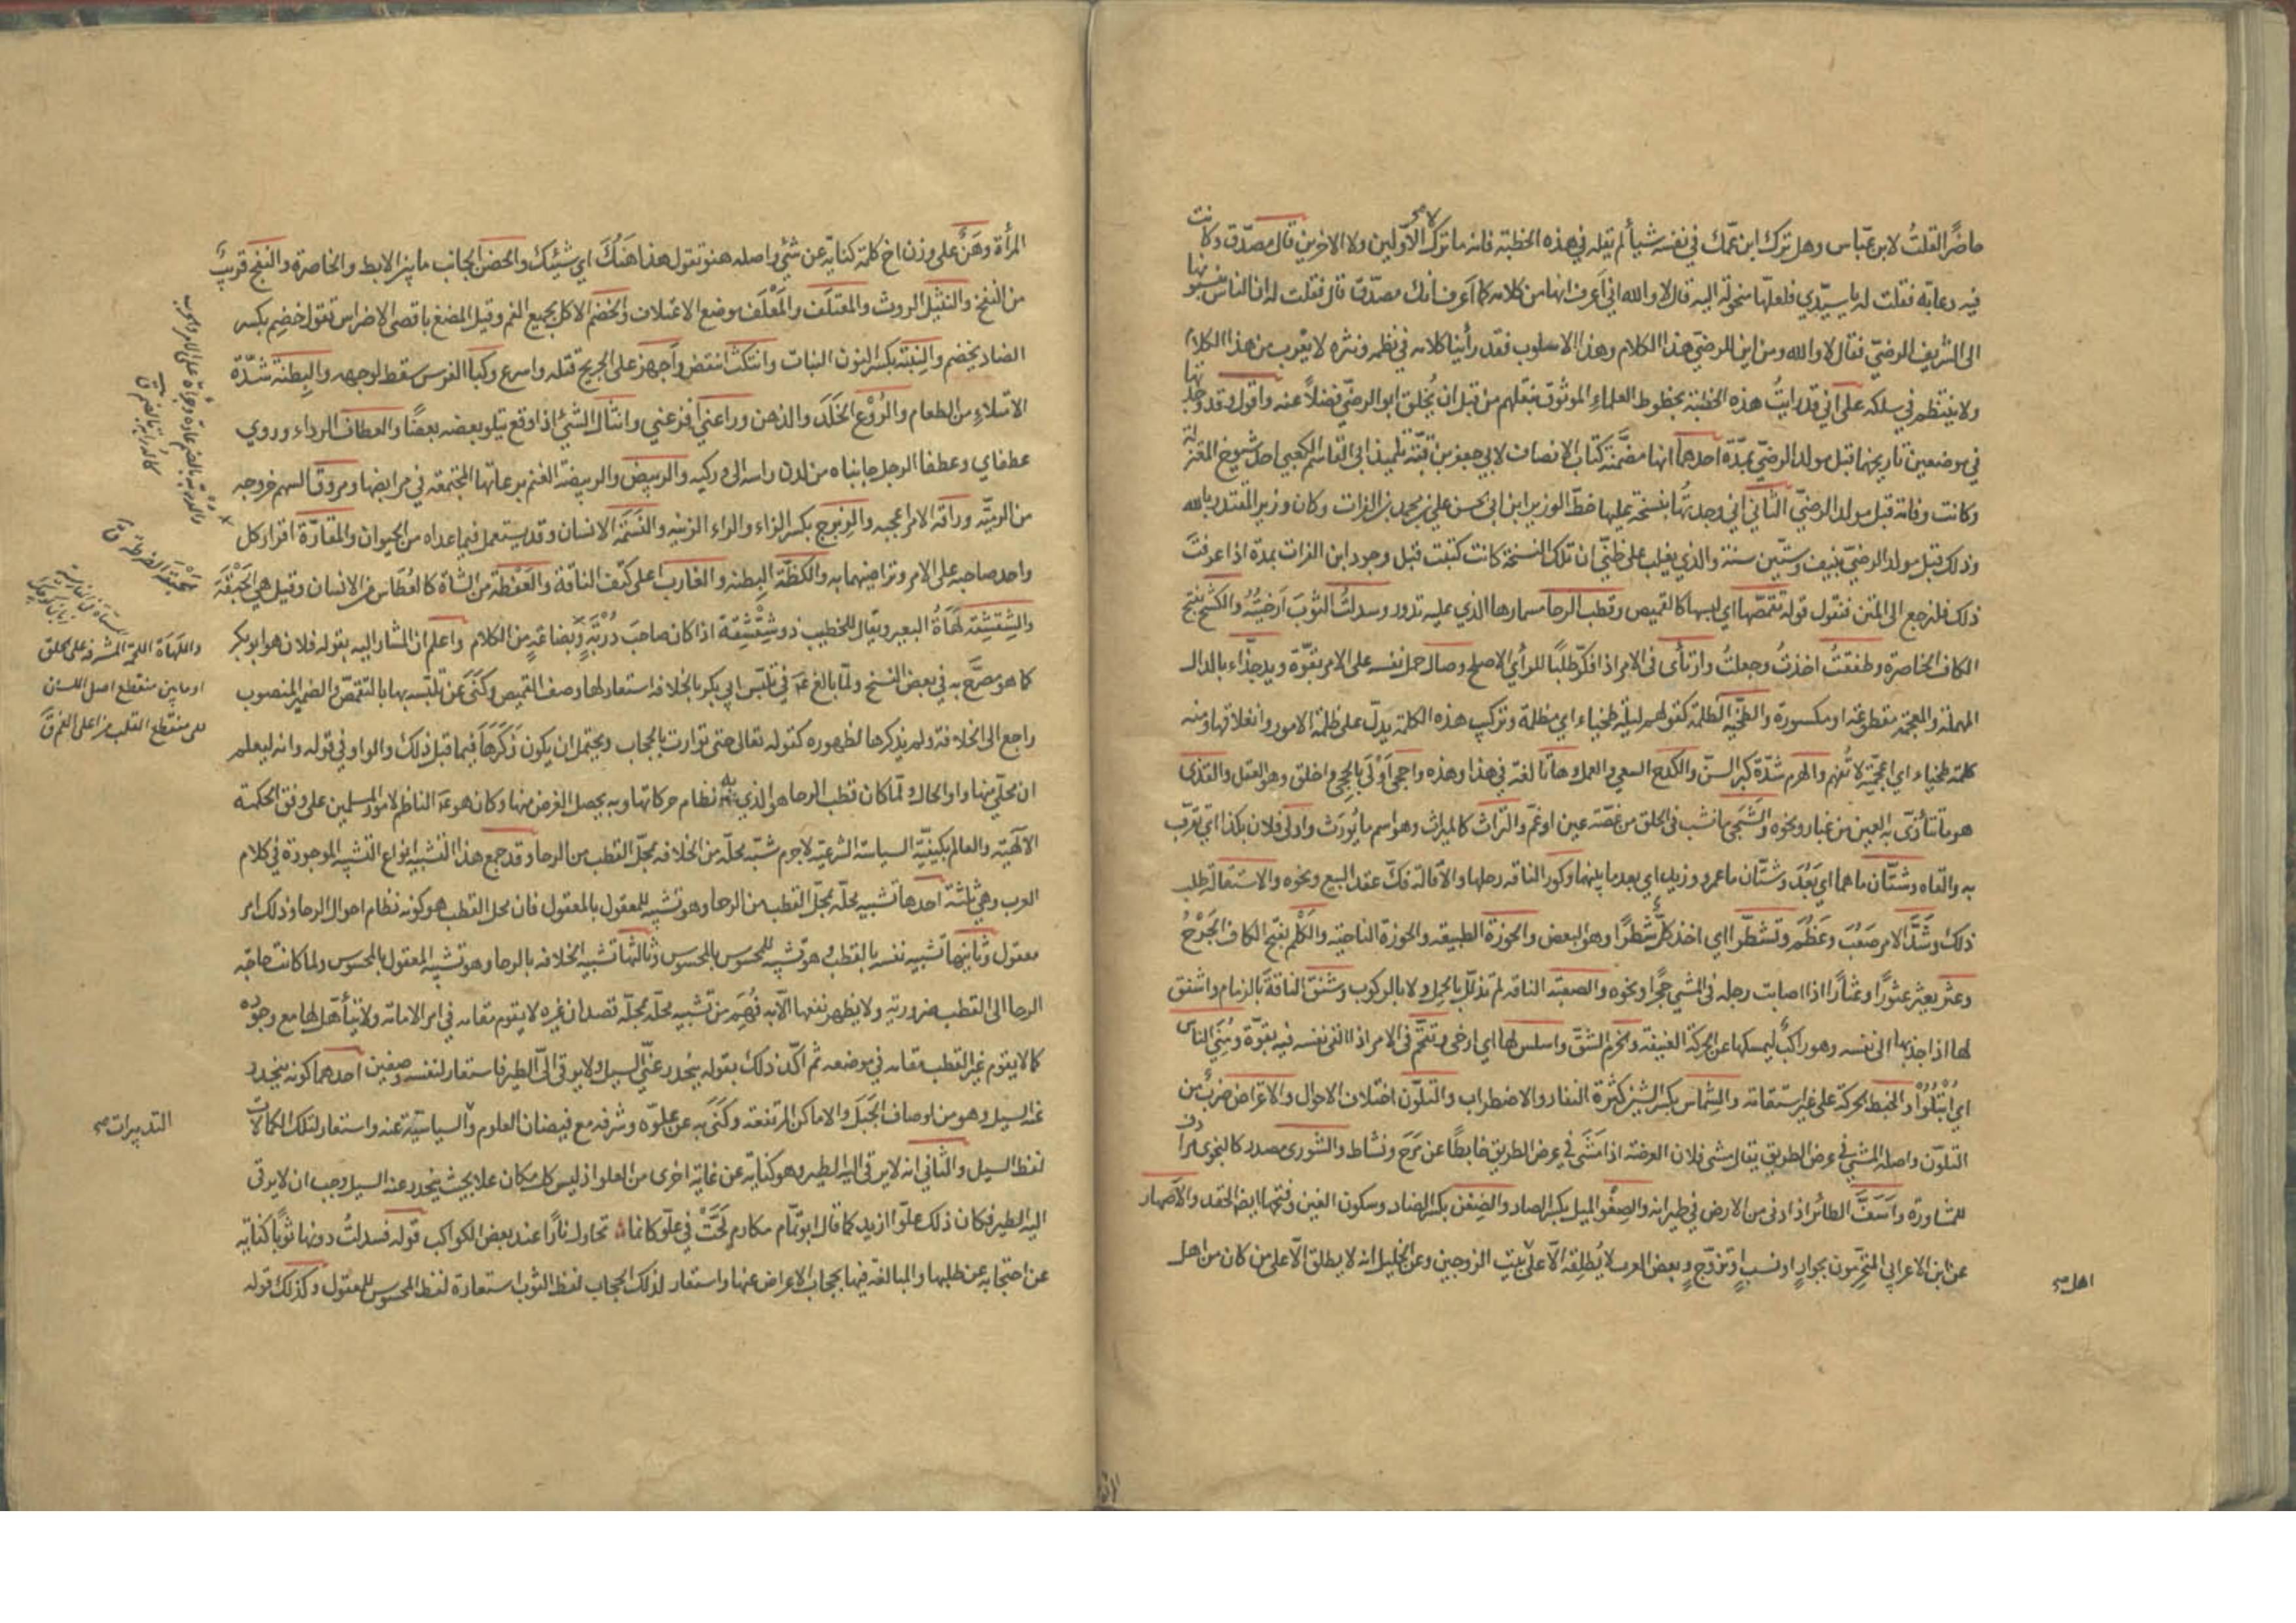 حاضرًا لقلتُ لابن عبّاس وهل ترك ابن عمّك في نفسه شيأ لم يقله في هذه الخطبة فانه ما ترك لا الاولين ولا الاخرين قال مصدّق وكانت
فيه دعابة فقلت له يا سيّدي فلعلّها منحولة اليه قال لا والله اني اعرف انها من كلامه كما اعرف انك مصدّق قال فقلت له ان الناس ينسبونها
الى الشريف الرضيّ فقال لا والله ومن اين للرضيّ هذا الكلام وهذا الاسلوب فقد رأينا كلامه في نظمه ونثره لا يقرب من هذا الكلام
ولا ينتظم في سلكه على اني قد رايتُ هذه الخطبة بخطوط العلماء الموثوق بنقلهم من قبل ان يُخلق ابو الرضيّ فضلاً عنه واقول وقد وجدتها
في موضعين تاريخهما قبل مولد الرضيّ بمدّة احدهما انها مضمَّنة كتاب الانصاف لابي جعفر بن قبّة تلميذ ابي القاسم الكعبي احد شيوخ المعتزلة
وكانت وفاته قبل مولد الرضيّ الثاني اني وجدتُها بنسخة عليها خطّ الوزير ابن ابي الحسن علي بن محمد بن الفرات وكان وزير المقتدر بالله
وذلك قبل مولد الرضيّ بنيف وستّين سنة والذي يغلب على ظنّي ان تلك النسخة كانت كتبت قبل وجود ابن الفرات بمدة اذا عرفت
ذلك فلنرجع الى المتن فنقول قوله تقمّصها اي لبسها كالقميص وقطب الرحا مسمارها الذي عليه تدور وسدلتُ الثوبَ ارخيتُهُ والكشح بفتح
الكاف الخاصرة وطفقتُ اخذتُ وجعلتُ وارتأى في الامر اذا فكّر طلبًا للرأي الاصلح وصال حمل نفسه على الامر بقوّة ويد جذّاء بالدال
المهملة والمعجمة مقطوعة او مكسورة والطخية الظلمة كقولهم ليلة طخياء اي مظلمة وتركيب هذه الكلمة يدلّ على ظلمة الامور وانغلاقها ومنه
كلمة طخياء اي اعجميّة لا تُفهم والهرم شدّة كبر السنّ والكدح السعي والعمل وهاتا لغة في هذا وهذه واحجى اَوْلى بالحجى واخلق وهو العقل والقذى
هو ما تتأذّى به العين من غبار ونحوه والشَجَى ما نشب في الحلق من غصّة عين او غمّ والتراث كالميراث وهو اسم ما يُورَث وادلى فلان بكذا اي تقرّب
به والقاه وشتّان ما هما اي بَعُدَ وشتّان ما عمرو وزيد اي بعد ما بينهما وكور الناقة رحلها والاقالة فكّ عقد البيع ونحوه والاستقالة طلب
ذلك وشَدَّ الامر صَعُبَ وعَظُمَ وتشطّرا اي اخذ كلٌّ شطرًا وهو البعض والحوزة الطبيعة والحوزة الناحية والكَلْم بفتح الكاف الجَرْحُ
وعثر يعثر عثورًا وعثارًا اذا اصابت رجله في المشي حجرًا ونحوه والصعبة الناقة لم تذلّل بالحمل ولا بالركوب وشنق الناقة بالزمام واشنق
لها اذا جذبها الى نفسه وهو راكب ليمسكها عن الحركة العنيفة والخرم الشقّ واسلس لها اي ارخى وتقحّم في الامر اذا القى نفسه فيه بقوّة ومُنِيَ الناس
اي ابْتُلُوا والخبط الحركة على غير استقامة والشِماس بكسر الشين كثرة النفار والاضطراب والتلوّن اختلاف الاحوال والاعتراض ضربٌ من
التلوّن واصله المشي في عرض الطريق يقال مشى فلان العرضنة اذا مَشَى في عرض الطريق خابطًا عن مَرَح ونشاط والشورى مصدر كالنجوى مرادف
للمشاورة واَسَفَّ الطائر اذا دنى من الارض في طيرانه والصِغْو الميل بكسر الصاد والضِغن بكسر الضاد وسكون الغين وفتحها ايضا الحقد والاصهار
عن ابن الاعرابي المتحرّمون بجوارٍ او نسبٍ او تزوّجٍ وبعض العرب لا يُطلقه الّا على بيت الزوجين وعن الخليل انه لا يطلق الّا على من كان من اهل
اهل صح
المرأة وهَنٌ على وزن اخ كلمة كناية عن شئ واصله هنو تقول هذا هَنُكَ اي شيئك والحضن الجانب ما بين الابط والخاصرة والنفج قريبٌ
من النفخ والنثيل الروث والمعتلَف والمَعْلَف موضع الاعتلاف والخضم الاكل بجميع الفم وقيل المضغ باقصى الاضراس تقول خضِم بكسر
الضاد يخضم والنِبتة بكسر النون النبات وانتكث انتقض واجهز على الجريح قتله واسرع وكبا الفرس سقط لوجهه والبِطنة شدّة
الامتلاء من الطعام والرُوْع الخَلَد والذهن وراعني افزعني وانثال الشئ اذا وقع يتلو بعضه بعضًا والعطاف الرداء وروي
عطفاي وعطفا الرجل جانباه من لدن راسه الى وركيه والربيض والربيضة الغنم برعاتها المجتمعة في مرابضها ومروق السهم خروجه
من الرميّة وراقه الامر اعجبه والزِبرج بكسر الزاء والراء الزينة والنَسَمَة الانسان وقد يستعمل فيما عداه من الحيوان والمقارّة اقرار كل
واحد صاحبه على الامر وتراضيهما به والكظّة البطنة والغارب اعلى كتف الناقة والعَفْطة من الشاة كالعُطَاس من الانسان وقيل هي الحَبْقَة
والشِقشِقة لَهَاةُ البعير ويقال للخطيب ذو شِقْشِقة اذا كان صاحبَ دُرْبَةٍ وبضاعةٍ من الكلام واعلم ان المشار اليه بقوله فلان هو ابو بكر
كما هو مصرَّح به في بعض النسخ ولمّا بالغ ع في تلبّس ابي بكر بالخلافة استعار لها وصف القميص وكَنَى عن تلبّسه بها بالتقمّص والضمير المنصوب
راجع الى الخلافة ولم يذكرها لظهوره كقوله تعالى حتى توارت بالحجاب ويحتمل ان يكون ذَكَرَها فيما قبل ذلك والواو في قوله وانه ليعلم
ان محلّي منها واو الحال ولمّا كان قطب الرحا هو الذي به نظام حركاتها وبه يحصل الغرض منها وكان هو ع الناظم لامور المسلمين على وفق الحكمة
الالهيّة والعالم بكيفيّة السياسة الشرعيّة لاجرم شبّه محلّه من الخلافة بمحلّ القطب من الرحا وقد جمع هذا التشبيه انواع التشبيه الموجودة في كلام
العرب وهي ثلثة احدها تشبيه محلّه بمحلّ القطب من الرحا وهو تشبيه للمعقول بالمعقول فان محل القطب هو كونه نظام احوال الرحا وذلك امر
معقول وثانيها تشبيه نفسه بالقطب وهو تشبيه للمحسوس بالمحسوس وثالثها تشبيه الخلافة بالرحا وهو تشبيه المعقول بالمحسوس ولما كانت حاجة
الرحا الى القطب ضرورية ولا يظهر نفعها الّا به فُهِمَ من تشبيه محلّه بمحلّه قصد ان غيره لا يقوم مقامه في امر الامامة ولا يتأهّل لها مع وجوده
كما لا يقوم غير القطب مقامه في موضعه ثم اكّد ذلك بقوله ينحدر عنّي السيل ولا يرقى اليّ الطير فاستعار لنفسه وصفين احدهما كونه ينحدر
عنه السيل وهو من اوصاف الجَبَل والاماكن المرتفعة وكَنَى به عن علوّه وشرفه مع فيضان العلوم والسياسية عنه واستعار لتلك الكمالات
لفظ السيل والثاني انه لا يرقى اليه الطير وهو كناية عن غاية اخرى من العلو اذ ليس كل مكان علا بحيث ينحدر عنه السيل وجب ان لا يرقى
اليه الطير فكان ذلك علوًّا ازيد كما قال ابو تمّام مكارم لَجَّتْ في علوّ كانما تحاول ثارًا عند بعض الكواكب قوله فسدلتُ دونها ثوبًا كناية
عن احتجابه عن طلبها والمبالغة فيها بحجاب الاعراض عنها واستعار لذلك الحجاب لفظ الثوب استعارة لفظ المحسوس للمعقول وكذلك قوله
والدربة بالضم عادة وجرأة على الامر والحرب
واللَهَاة اللحمة المشرفة على الحلق
او ما بين منقطع اصل اللسان
الى منقطع القلب من اعلى الفم ق
التدبيرات صح